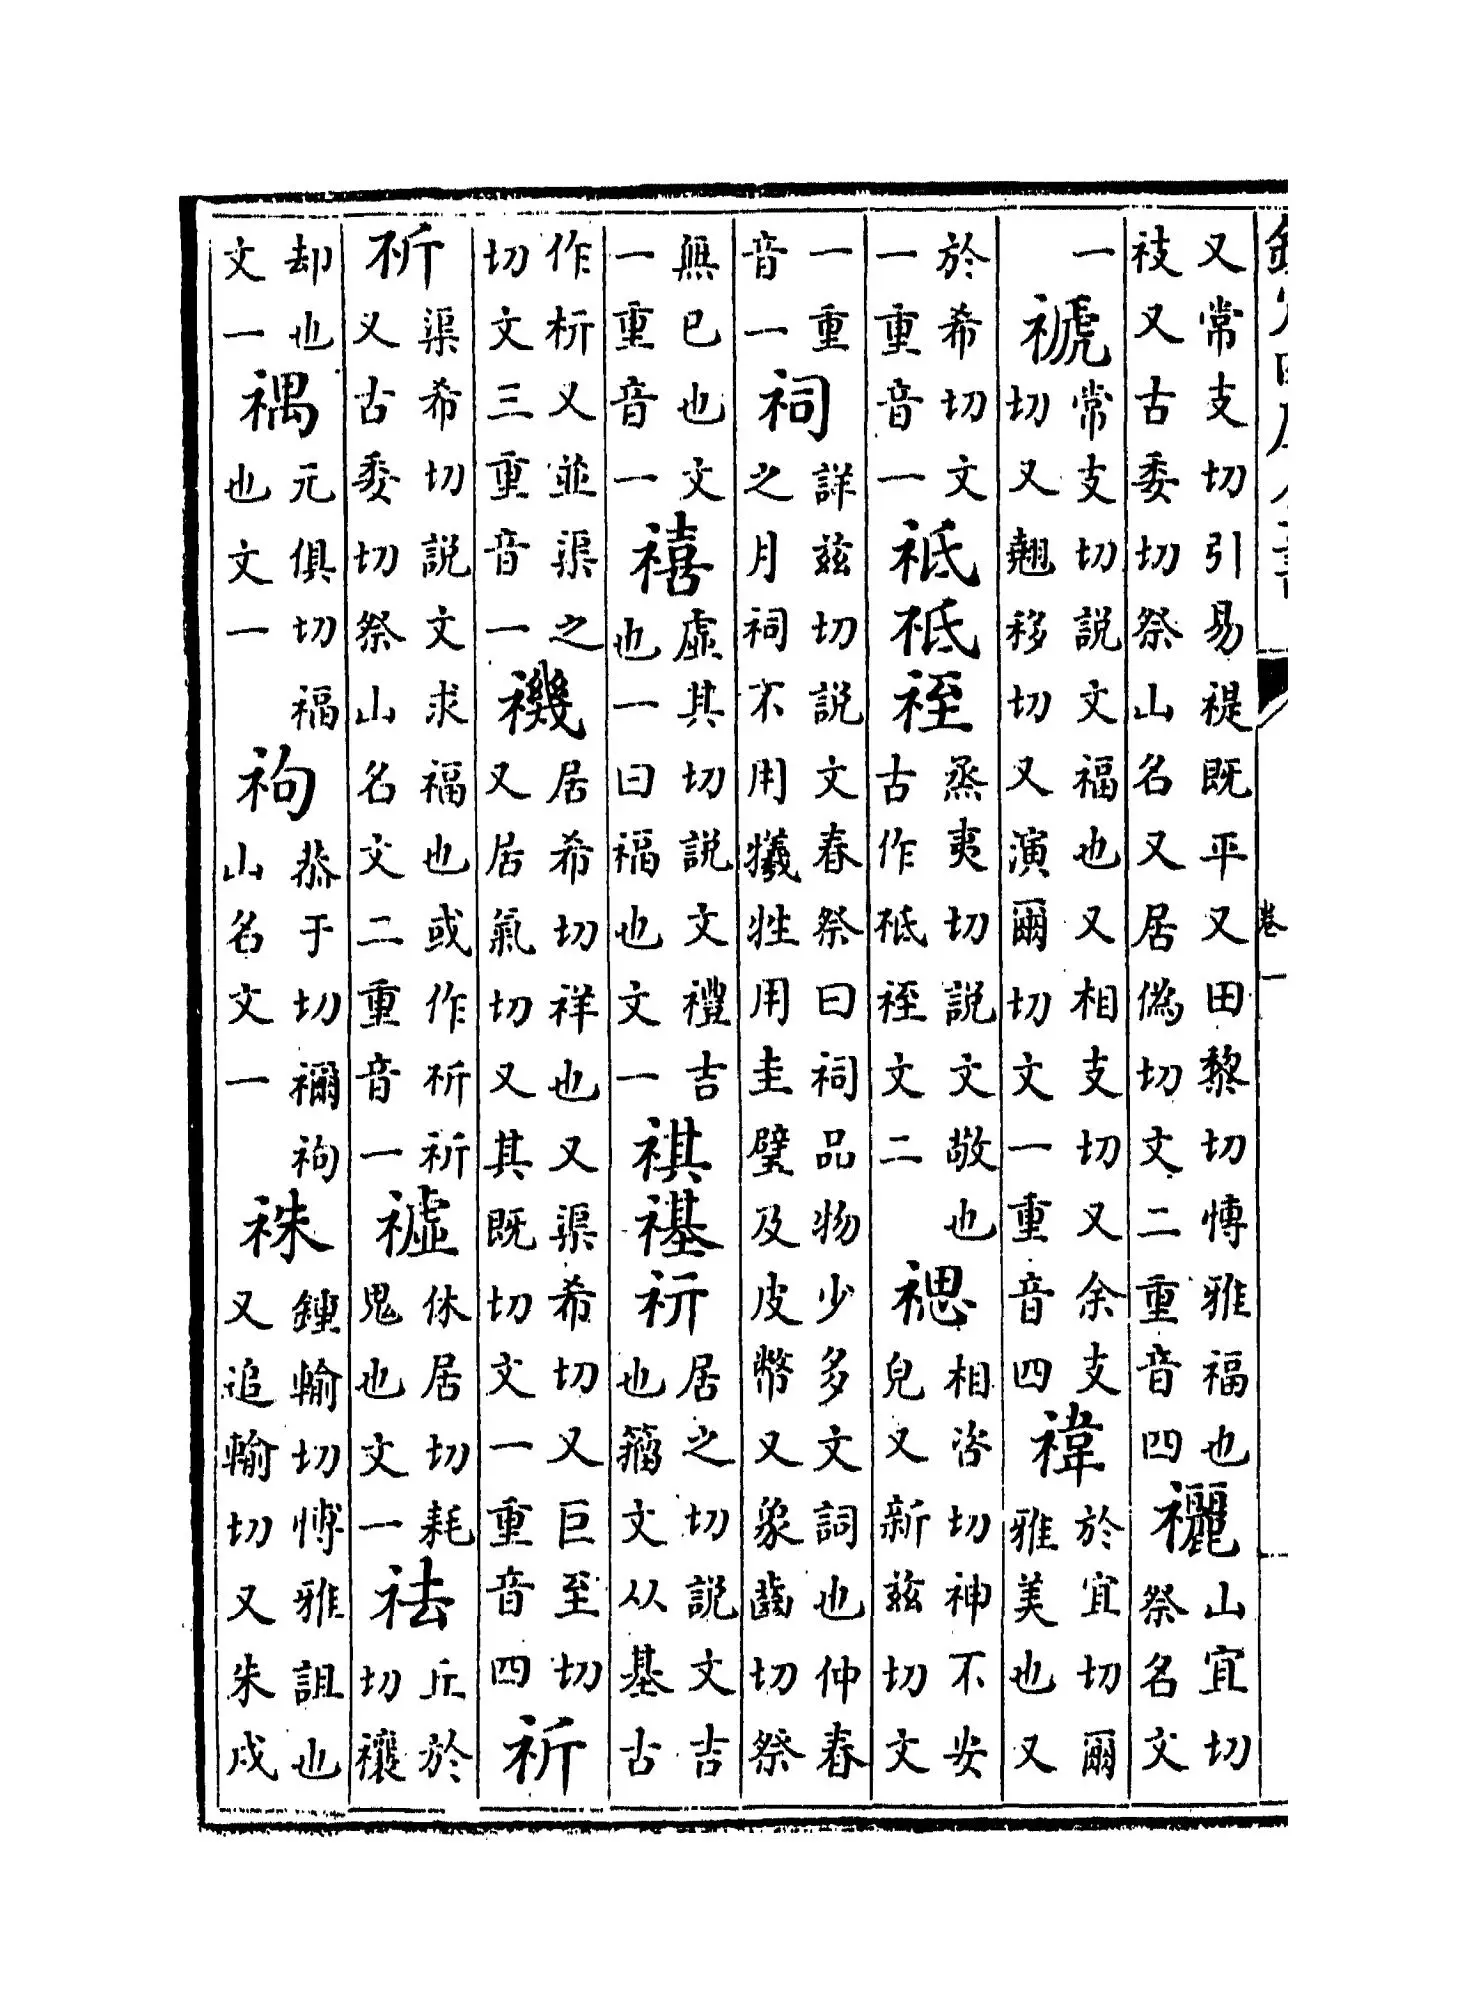 欽定四庫全書 卷一
又常支切引易禔既平又田黎切博雅福也衼又古委切祭山名又居偽切文二重音四襹山宜切祭名文
一禠常支切說文福也又相支切又余支切又翹移切又演爾切文一重音四禕於宜切爾雅美也又
於希切文一重音一祗秪祬烝夷切說文敬也古作秪祬文二禗相咨切神不安皃又新兹切文
一重音一祠詳兹切說文春祭曰祠品物少多文詞也仲春之月祠不用犧牲用圭璧及皮幣又象齒切祭
無巳也文一重音一禧虛其切說文禮吉也一曰福也文一祺禥居之切說文吉也籀文从基古
作枅又並渠之切文三重音一禨居希切祥也又渠希切又巨至切又居氣切又其既切文一重音四祈
祈渠希切說文求福也或作祈祈又古委切祭山名文二重音一休居切耗鬼也文一祛丘於切禳
却也文一禑元俱切福也文一袧恭于切禰袧山名文一祩鍾輸切博雅詛也又追輸切又朱戍